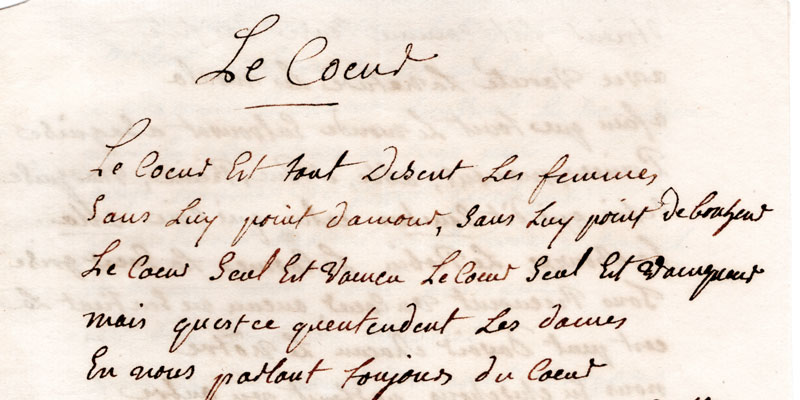 Le Coeur
Le Coeur Est tout disent Les femmes
Sans Luy point damour, Sans Luy point de bonheur
Le Coeur Seul Est Vaincu Le Coeur Seul Est Vainqueur
mais questce quentendent Les dames
En nous parlant toujours du Coeur